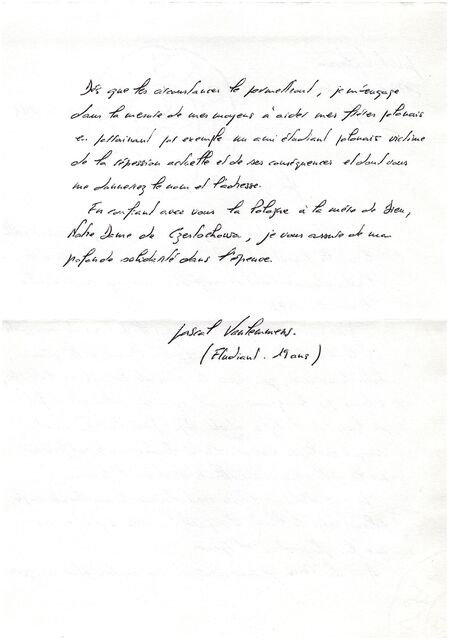 Dès que les circonstances le permettront, je m'engage
dans la mesure de mes moyens à aider mes frères polonais
en parrainant par exemple un ami étudiant polonais victime
de la répression actuelle et de ses conséquences et dont vous
me donnerez le nom et l'adresse.
En confiant avec vous la Pologne à la mère de Dieu,
Notre Dame de Czestochowa, je vous assure de ma
profonde solidarité dans l'épreuve.
Pascal
(Étudiant. 19 ans)